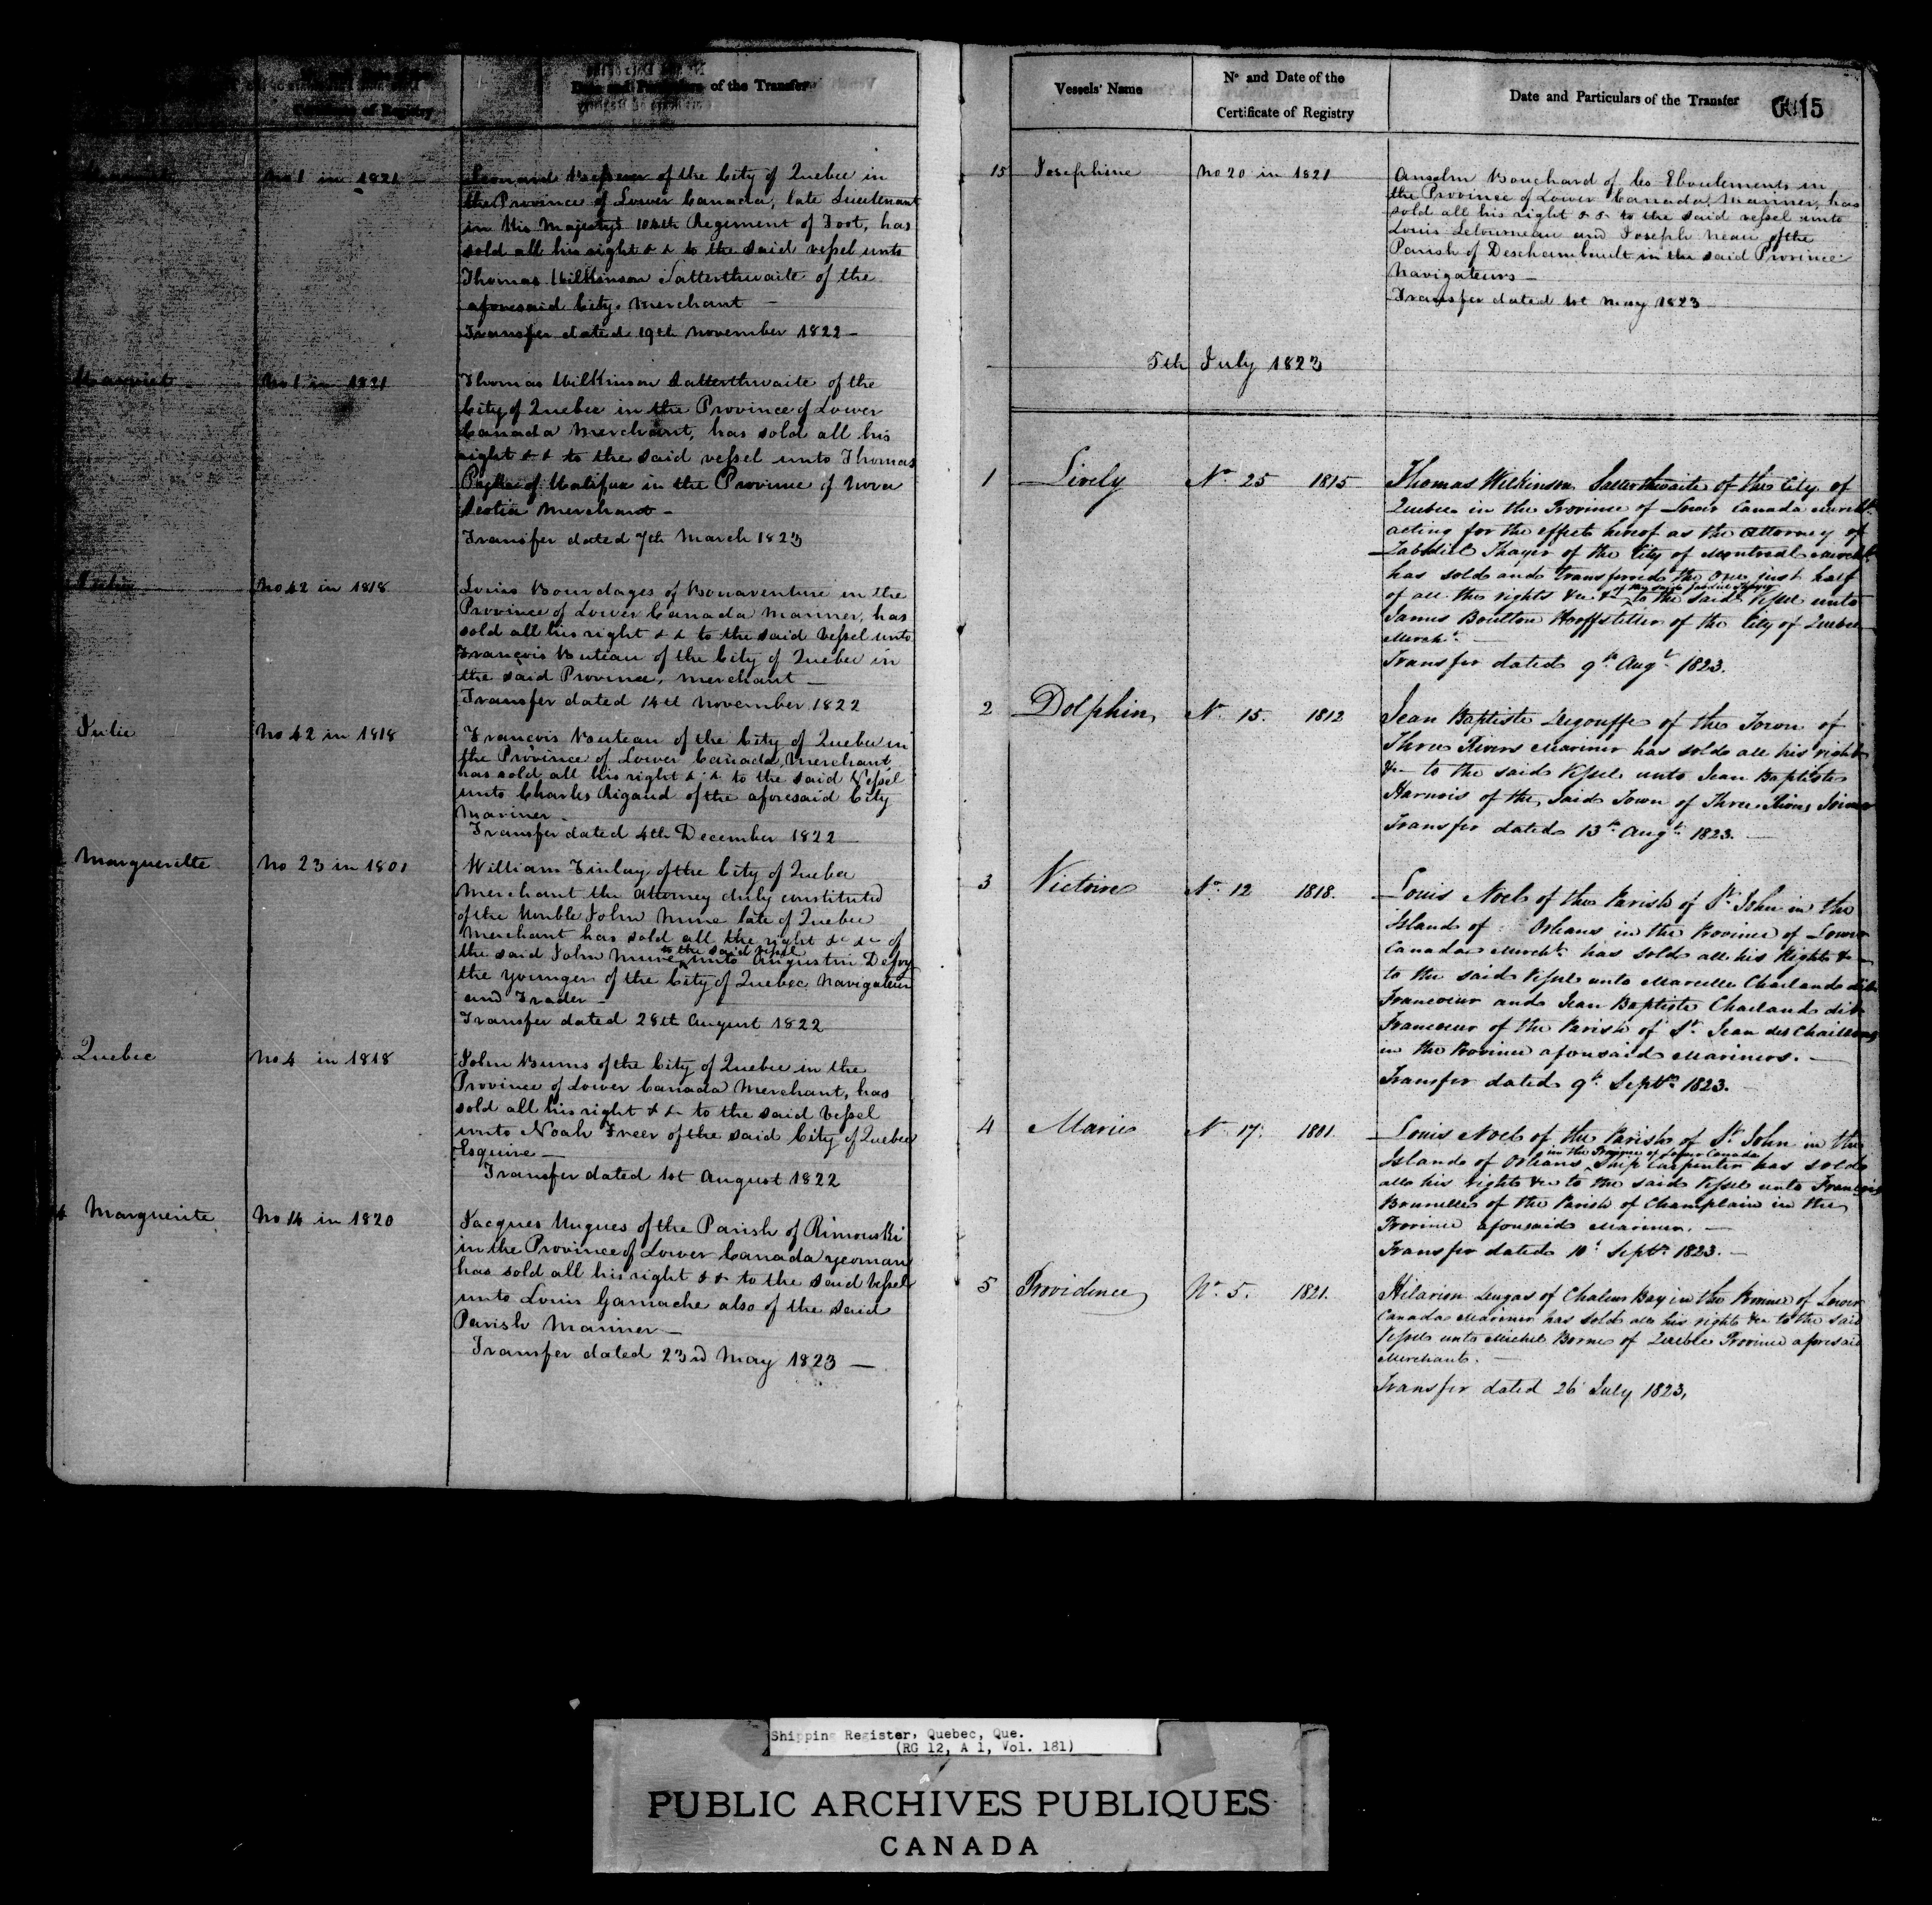 Certificate of Registry
Date and Particulars of the Transfer
No 1 in 1821
of the City of Quebec in
the Province of Lower Canada, late Lieutenant
in His Majestys 104th Regiment of Foot, has
sold all his right & & to the said vessel unto
Thomas Wilkinson Satterthwaite of the
aforesaid City, Merchant —
Transfer dated 19th November 1822 —
Harriet
No 1 in 1821
Thomas Wilkinson Satterthwaite of the
City of Quebec in the Province of Lower
Canada Merchant, has sold all his
right & & to the said vessel unto Thomas
of Halifax in the Province of Nova
Scotia Merchant —
Transfer dated 7th March 1823
Julie
No 42 in 1818
Louis Bourdages of Bonaventure in the
Province of Lower Canada Mariner, has
sold all his right & & to the said Vessel unto
François Buteau of the City of Quebec in
the said Province, Merchant —
Transfer dated 14th November 1822
Julie
No 42 in 1818
François Buteau of the City of Quebec in
the Province of Lower Canada, Merchant,
has sold all his right & & to the said Vessel
unto Charles Rigaud of the aforesaid City
Mariner —
Transfer dated 4th December 1822
Marguerite
No 23 in 1801
William Finlay of the City of Quebec
Merchant the attorney duly constituted
of the Honble John Mure late of Quebec
Merchant has sold all the right &c &c of
to the said vessel
the said John Mure unto Augustin Defoy
the younger of the City of Quebec Navigateur
and Trader —
Transfer dated 28th August 1822
Quebec
No 4 in 1818
John Burns of the City of Quebec in the
Province of Lower Canada Merchant, has
sold all his right & & to the said Vessel
unto Noah Freer of the said City of Quebec
Esquire —
Transfer dated 1st August 1822
Marguerite
No 14 in 1820
Jacques Hugues of the Parish of Rimouski
in the Province of Lower Canada yeoman
has sold all his right & & to the said Vessel
unto Louis Gamache also of the said
Parish Mariner —
Transfer dated 23rd May 1823 —
Vessels' Name
No and Date of the
Certificate of Registry
Date and Particulars of the Transfer
15
15
Josephine
No 20 in 1821
Anselm Bouchard of les Eboulements in
the Province of Lower Canada, Mariner, has
sold all his right & & to the said vessel unto
Louis Letourneau and Joseph Neau of the
Parish of Deschambault in the said Province
Navigateurs —
Transfer dated 1st May 1823
5th July 1823
1
Lively
No 25 1815
Thomas Wilkinson Satterthwaite of the City of
Quebec in the Province of Lower Canada Mercht
acting for the effect hereof as the Attorney of
Zabdiel Thayer of the City of Montreal Mercht
has sold and transferred the One just half
of the said Zabdiel Thayer
of all the rights &c &c to the said Vessel unto
James Boulton Hooffstetter of the City of Quebec
Mercht —
Transfer dated 9th Augt 1823.
2
Dolphin
No 15. 1812
Jean Baptiste Dugouffe of the Town of
Three Rivers Mariner has sold all his right
&c to the said Vessel unto Jean Baptiste
Harnois of the said Town of Three Rivers Joiner
Transfer dated 13th Augt 1823. —
3
Victoire
No 12 1818.
Louis Noel of the Parish of St John in the
Island of Orleans in the Province of Lower
Canada Mercht has sold all his Rights &c
to the said Vessel unto Marcelle Chailand dit
Francoeur and Jean Baptiste Chailand dit
Francoeur of the Parish of St Jean des Chaillons
in the Province aforesaid Mariners. —
Transfer dated 9th Septr 1823. —
4
Marie
No 17. 1801.
Louis Noel of the Parish of St John in the
in the Province of Lower Canada
Island of Orleans Ship Carpenter has sold
all his rights &c to the said Vessel unto François
Brunelle of the Parish of Champlain in the
Province aforesaid Mariner. —
Transfer dated 10th Septr 1823. —
5
Providence
No 5. 1821.
Hilarion Dugas of Chaleur Bay in the Province of Lower
Canada Mariner has sold all his rights &c to the said
Vessel unto Michel Borne of Quebec Province aforesaid
Merchant. —
Transfer dated 26 July 1823,
Shipping Register, Quebec, Que.
(RG 12, A 1, Vol. 181)
PUBLIC ARCHIVES PUBLIQUES
CANADA